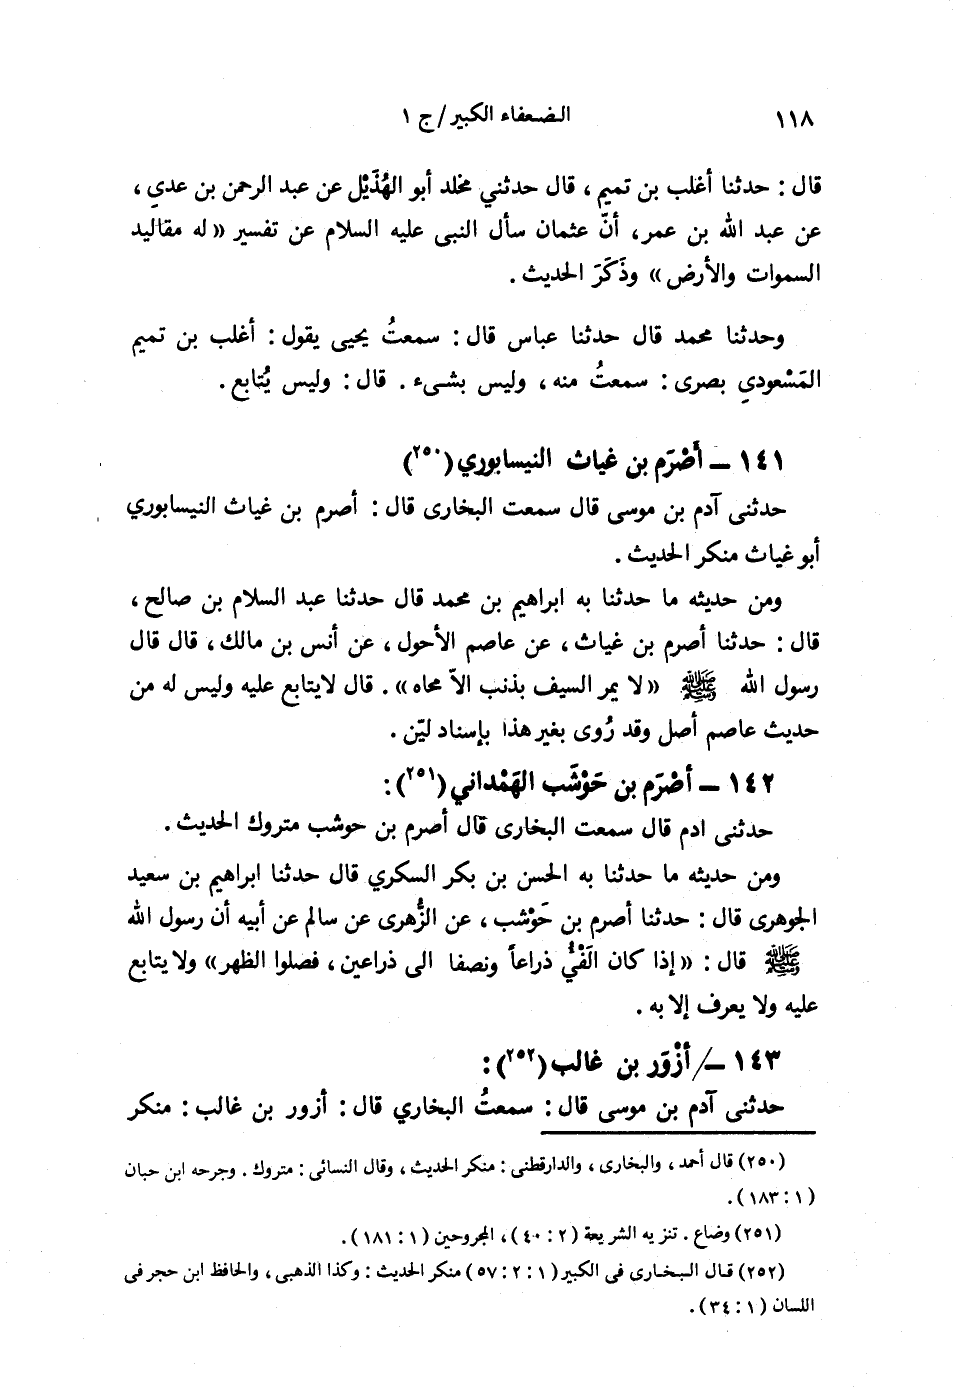 ١١٨ الضعفاء الكبير/ج ١
قال : حدثنا أغلب بن تميم ، قال حدثني مخلد أبو الهُذَيْل عن عبد الرحمن بن عدي ،
عن عبد الله بن عمر، أنّ عثمان سأل النبى عليه السلام عن تفسير «له مقاليد
السموات والأرض» وذَكَرَ الحديث .
وحدثنا محمد قال حدثنا عباس قال : سمعتُ يحيى يقول : أغلب بن تميم
المَسْعودي بصرى : سمعتُ منه ، وليس بشىء . قال : وليس يُتابع .
١٤١ – أَصْرَم بن غياث النيسابوري(٢٥٠)
حدثنى آدم بن موسى قال سمعت البخارى قال : أصرم بن غياث النيسابوري
أبو غياث منكر الحديث .
ومن حديثه ما حدثنا به ابراهيم بن محمد قال حدثنا عبد السلام بن صالح ،
قال : حدثنا أصرم بن غياث ، عن عاصم الأحول ، عن أنس بن مالك ، قال قال
رسول الله ﷺ «لا يمر السيف بذنب الاّ محاه» . قال لايتابع عليه وليس له من
حديث عاصم أصل وقد رُوى بغير هذا بإسناد ليّن .
١٤٢ – أصْرَم بن حَوْشَب الهَمْداني(٢٥١):
حدثنى ادم قال سمعت البخارى قال أصرم بن حوشب متروك الحديث .
ومن حديثه ما حدثنا به الحسن بن بكر السكري قال حدثنا ابراهيم بن سعيد
الجوهرى قال : حدثنا أصرم بن حَوْشب ، عن الزُّهرى عن سالم عن أبيه أن رسول الله
ﷺ قال : «إذا كان الَفْيُّ ذراعاً ونصفا الى ذراعين ، فصلوا الظهر» ولا يتابع
عليه ولا يعرف إلا به .
١٤٣ –/أزْوَر بن غالب(٢٥٢):
حدثنى آدم بن موسى قال : سمعتُ البخاري قال : أزور بن غالب : منكر
(٢٥٠) قال أحمد ، والبخارى ، والدارقطنى : منكر الحديث ، وقال النسائى : متروك . وجرحه ابن حبان
(١ : ١٨٣) .
(٢٥١) وضاع . تنزيه الشريعة (٢ : ٤٠) ، المجروحين (١ : ١٨١) .
(٢٥٢) قال البخارى فى الكبير (١ : ٢ : ٥٧) منكر الحديث : وكذا الذهبى ، والحافظ ابن حجر فى
اللسان (١ : ٣٤) .